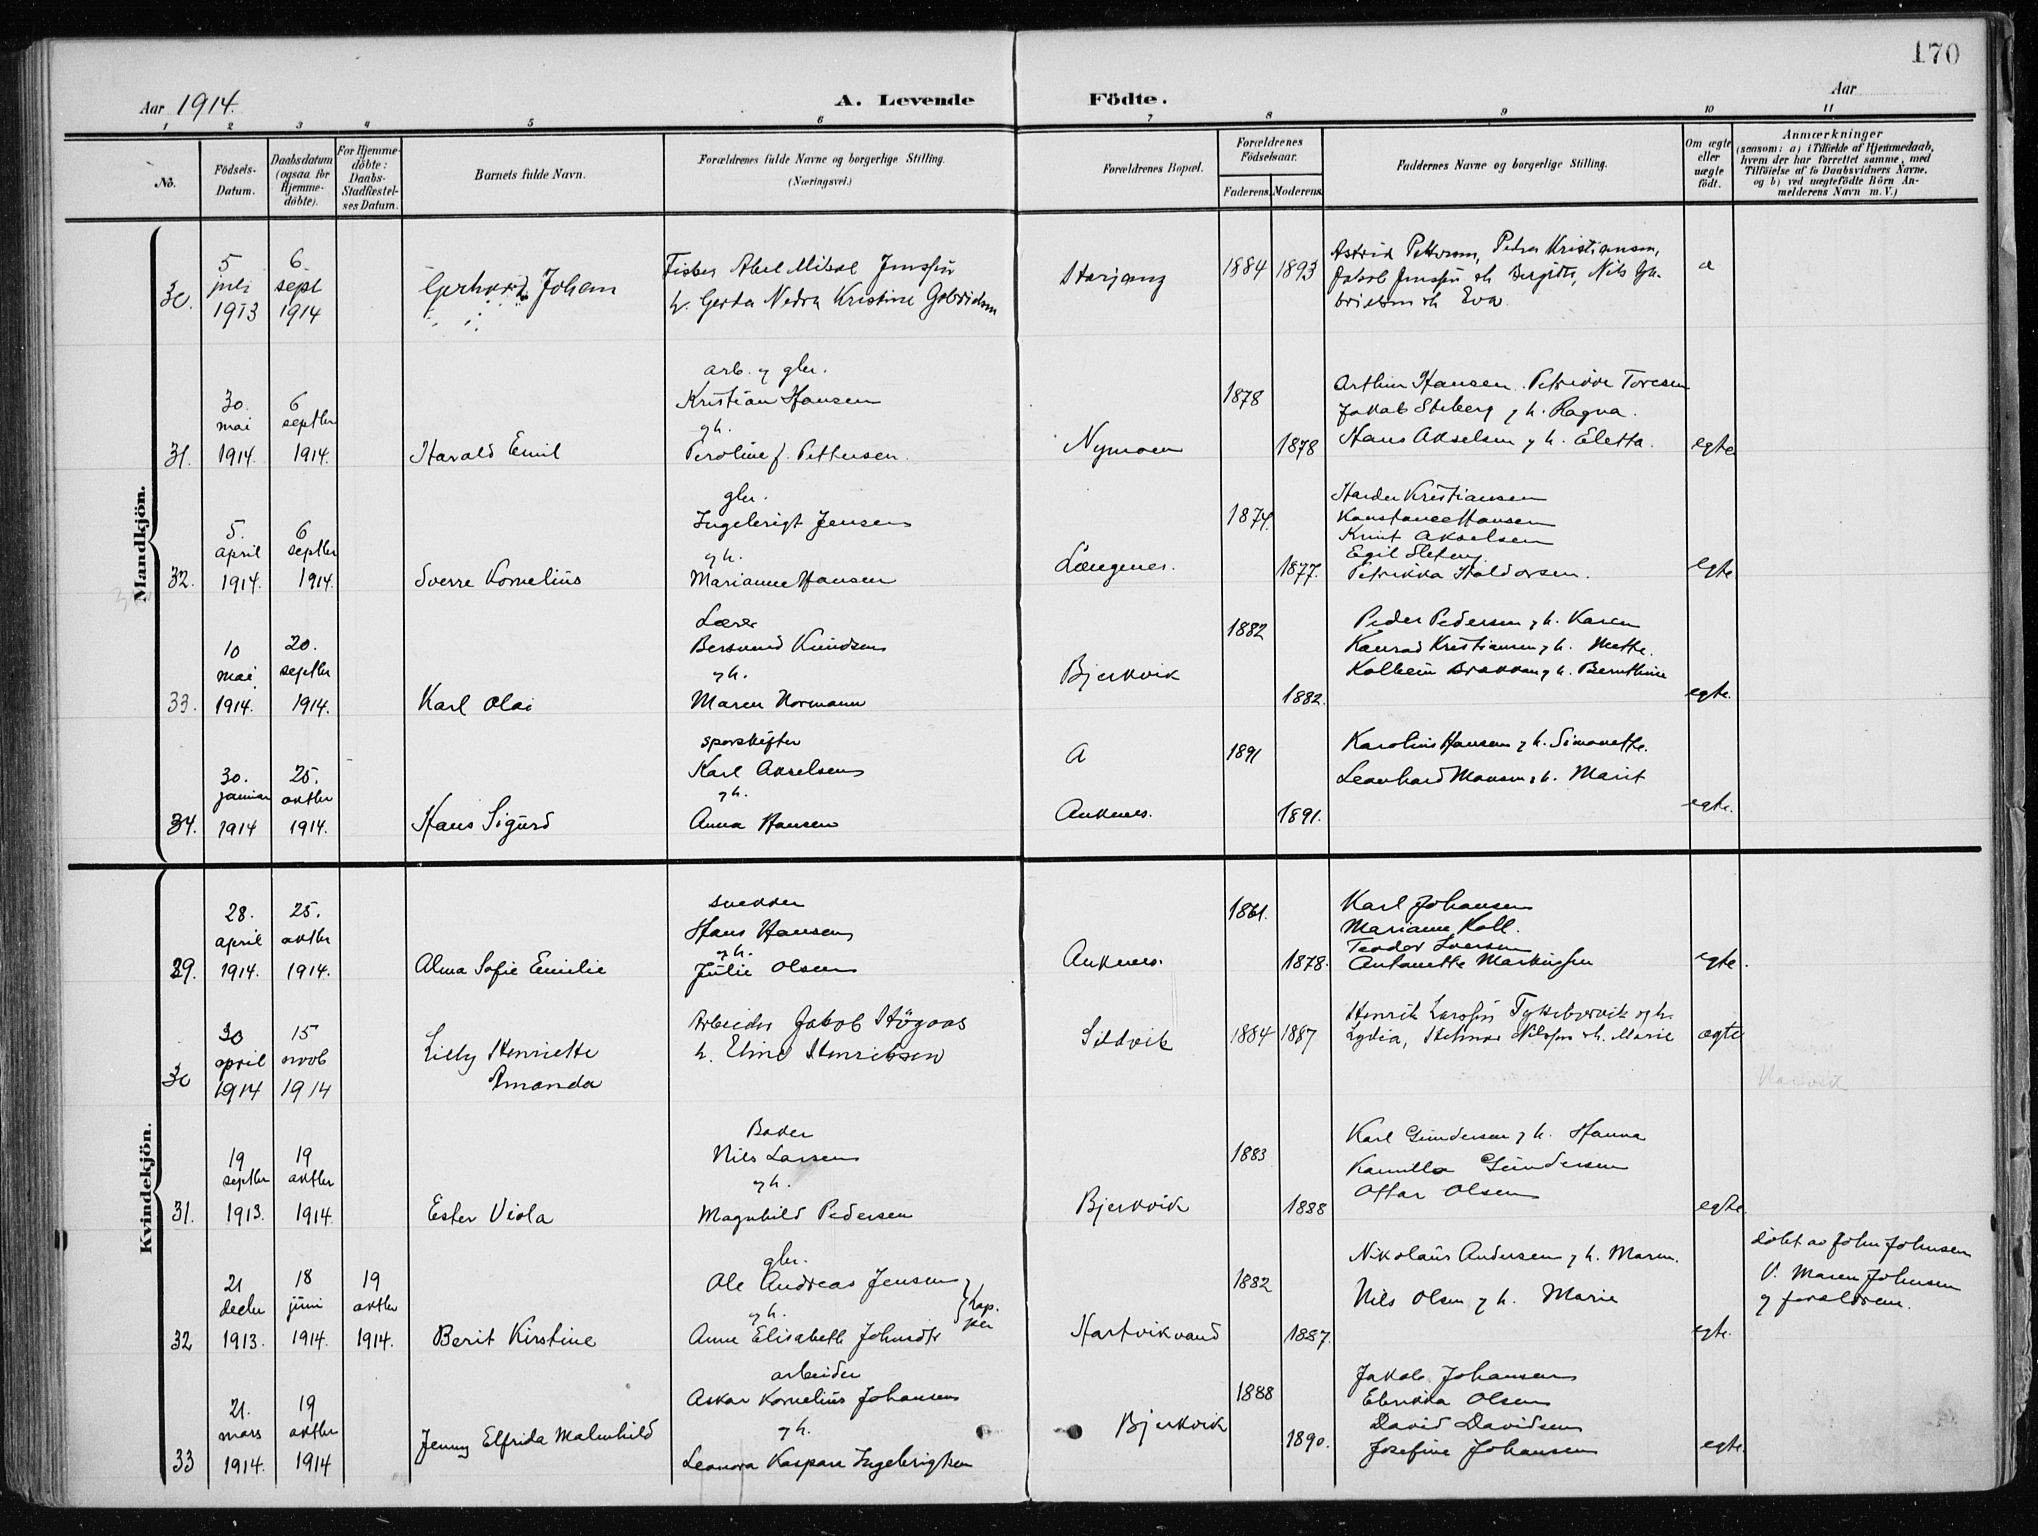 170
Aar 1914.
A. Levende Födte.
Aar
1 2 3 4 5 6 7 8 9 10 11
No.
Födsels-Datum.
Daabsdatum (ogsaa for Hjemme-döbte).
For Hjemme-döbte: Daabs-Stadfæstel-ses Datum.
Barnets fulde Navn.
Forældrenes fulde Navne og borgerlige Stilling.
(Næringsvei.)
Forældrenes Bopæl.
Forældrenes Födselsaar.
Faderens. Moderens.
Faddernes Navne og borgerlige Stilling.
Om ægte eller uægte födt.
Anmærkninger
(saasom: a) i Tilfælde af Hjemmedaab,
hvem der har forrettet samme, med
Tilföielse af to Daabsvidners Navne,
og b) ved uægtefödte Börn An-
melderens Navn m. V.)
Mandkjön.
30.
5 juli 1913
6 sept 1914
Gerhard Johan
Fisker Abel Mikal Jenssen
h. Gerda Nedra Kristine Gabrielsen
Herjang
1884 1893
Astrid Pettersen, Peder Kristiansen,
Jakob Jenssen oh Bergitte, Nils Ga-
brielsen oh Eva
æ
31.
30. mai 1914.
6 septber 1914.
Harald Emil
arb. og gbr.
Kristian Hansen
og h.
Peroline f. Pettersen.
Nymoen
1878
1878
Arthur Hansen. Petrikke Toresen
Jakob Stiberg og h. Ragna.
Hans Akselsen og h. Eletta.
egte
32.
5. april 1914.
6 septber 1914.
Sverre Kornelius
gbr.
Ingebrigt Jensen
og h.
Marianne Hansen
Længenes.
1874.
1877.
Hardu Kristiansen
Konstance Hansen
Knut Akselsen
Egil
Petrikka Haldorsen.
egte
33.
10 mai 1914.
20. septber 1914.
Karl Olai
Lærer
Bersvend Knudsen
og h.
Maren Normann
Bjerkvik
1882
1882.
Peder Pedersen og h. Karen
Konrad Kristiansen og h. Mette.
Kolbein Brakken og h. Bernthine
egte.
34.
30. januar 1914
25. oktber 1914.
Hans Sigurd
sporskifter
Karl Akselsen
og h.
Anna Hansen
A
Ankenes.
1891
1891.
Karolius Hansen og h. Simonette.
Leonhard Monsen og h. Marit
egte.
Kvindekjön.
29.
28. april 1914.
25. oktber 1914.
Alma Sofie Emilie
snekker
Hans Hansen
og h.
Julie Olsen
Ankenes.
1861.
1878.
Karl Johansen
Marianne Koll.
Teodor Iversen
Antonette Markussen
egte.
30
30 april 1914
15 novb 1914
Lilly Henriette
Amanda
Arbeider Jakob Høgaas
h. Eline Henriksen
Sildvik
1884 1887
Henrik Larssen Tyttebærvik og h.
Lydia, Helmer Nilssen oh. Marie
ægte
Narvik
31.
19 septber 1913.
19 oktber 1914.
Ester Viola
Baker
Nils Larsen
og h.
Magnhild Pedersen
Bjerkvik
1883
1888
Karl Gundersen og h. Hanna
Kamilla Gundersen
Ottar Olsen
egte
32
21 decber 1913.
18 juni 1914.
19 oktber 1914.
Berit Kirstine
gbr.
Ole Andreas Jensen
og h.
Anne Elisabeth Johnsdtr
lap-
per
Hartvikvand
1882
1887.
Nikolaus Andersen og h. Maren.
Nils Olsen og h. Marie
egte.
døbt av John Johnsen
V. Maren Johnsen
og forældrene.
33
21. mars 1914.
19 oktber 1914
Jenny Elfrida Malmhild
arbeider
Askar Kornelius Johansen
og h.
Leonora Kaspara Ingebrigtsen
Bjerkvik
1888
1890.
Jakob Johansen
Elerikka Olsen
David Davidsen
Josefine Johansen
egte